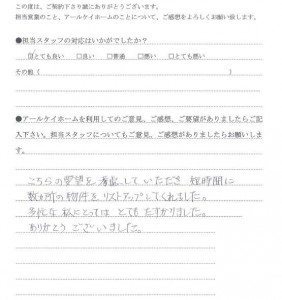 この度は、ご契約下さり誠にありがとうございます。
担当営業のこと、アールケイホームのことについて、ご感想をよろしくお願い致します。
●担当スタッフの対応はいかがでしたか？
☑とても良い □良い □普通 □悪い □とても悪い
その他（ ）
●アールケイホームを利用してのご意見、ご感想、ご要望がありましたらご記
入下さい。担当スタッフについてもご意見、ご感想がありましたらお願いしま
す。
こちらの要望を考慮していただき 短時間に
数か所の物件をリストアップしてくれました。
多忙な私にとっては とても たすかりました。
ありがとう ございました。